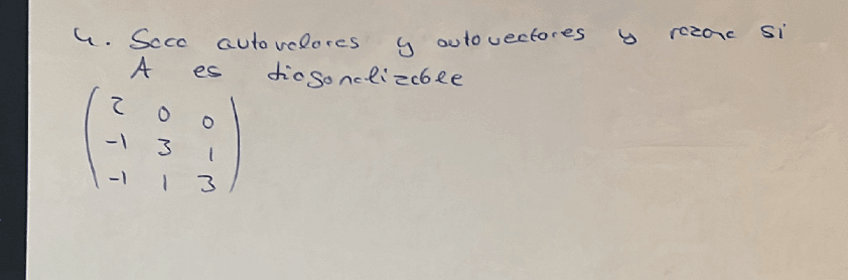 4. Saca autovalores y autovectores y razona si
A es diagonalizable
2 0 0
-1 3 1
-1 1 3